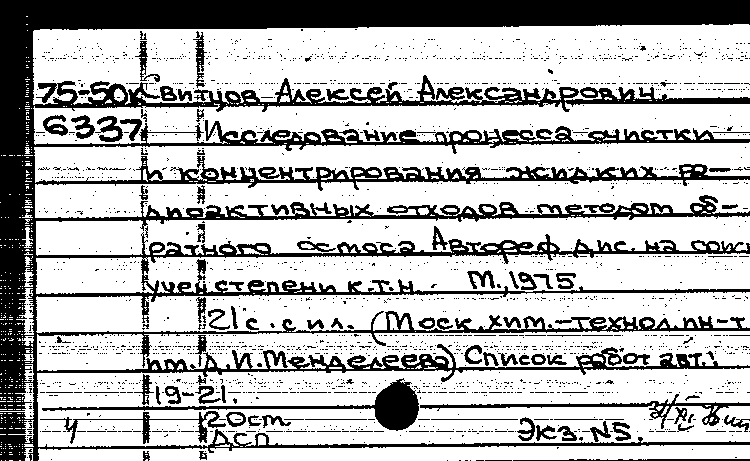 75-50к Свитцов, Алексей Александрович.
6337 Исследование процесса очистки
и концентрирования жидких ра-
диоактивных отходов методом об-
ратного осмоса. Автореф. дис. на соиск
учен степени к.т.н. М., 1975.
21 с. с ил. (Моск. хим.-технол. ин-т
им. Д. И. Менделеева) Список работ авт.:
19-21.
20 ст
ч ДСП Экз. N5.